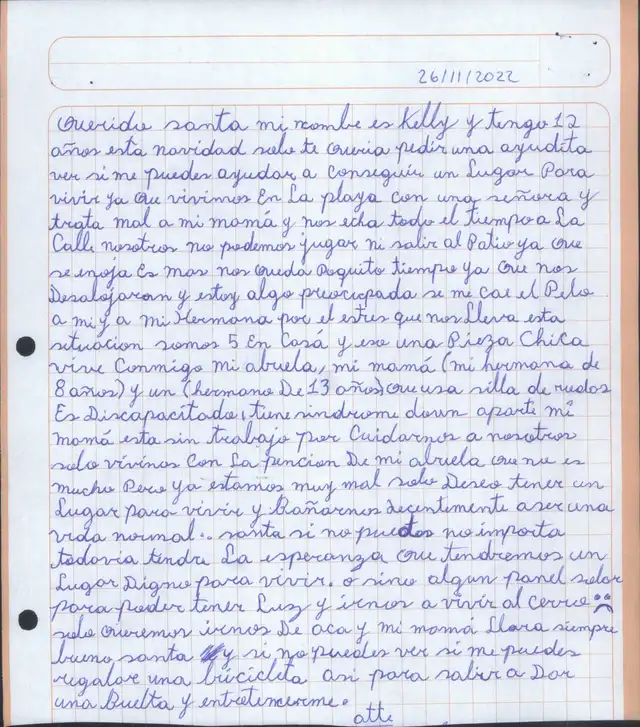 26/11/2022
Querido santa mi nombe es Kelly y tengo 12
años esta navidad solo te Queria pedir una ayudita
ver si me puedes ayudar a conseguir un Lugar Para
vivir ya Que vivimos En La playa con una señora y
trata mal a mi mamá y nos echa todo el tiempo a La
Calle nosotros no podemos jugar ni salir al Patio ya Que
se enoja Es mas nos Queda Poquito tiempo ya Que nos
Desalojaran y estoy algo preocupada se me cae el Pelo
a mi y a mi Hermana por el estres que nos Lleva esta
situacion somos 5 En Casá y eso una Pieza Chica
vive Conmigo mi abuela, mi mamá (mi hermana de
8 años) y un (hermano De 13 años) Que usa silla de ruedas
Es Discapacitado, tiene sindrome down aparte mi
mamá esta sin trabajo por Cuidarnos a nosotros
solo vivinos Con La pencion De mi abuela Que no es
mucho Pero ya estamos muy mal solo Deseo tener un
Lugar para vivir y Bañarnos decentemente a ser una
vida normal.. santa si no puedes no importa
todovia tendre La esperanza Que tendremos un
Lugar Digno para vivir. o sino algun panel solar
para poder tener Luz y irnos a vivir al cerro
solo Queremos irnos De aca y mi mamá LLora siempre
bueno santa y si no puedes ver si me puedes
regalar una bricicleta asi para salir a Dar
una Buelta y entretenerme.
atte